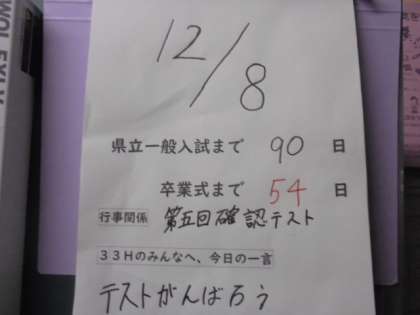 12/8
県立一般入試まで 90 日
卒業式まで 54 日
行事関係 第五回確認テスト
33Hのみんなへ、今日の一言
テストがんばろう